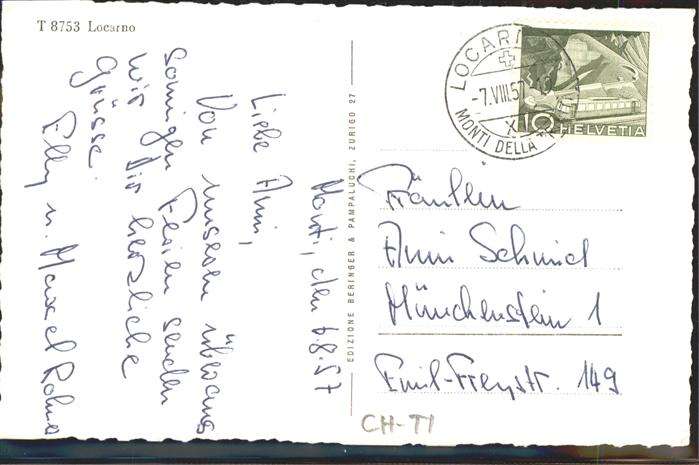 T 8753 Locarno
Monti, den 6.8.57
Liebe Anni,
Von unseren überaus
sonnigen Ferien senden
wir Dir herzliche
Grüsse.
Elly u. Marcel
EDIZIONE BERINGER & PAMPALUCHI, ZURIGO 27
LOCARNO
-7.VIII.57
X
MONTI DELLA
10 HELVETIA
Fräulein
Anni Schmid
Münchenstein 1
Emil-Freystr. 149
CH-TI